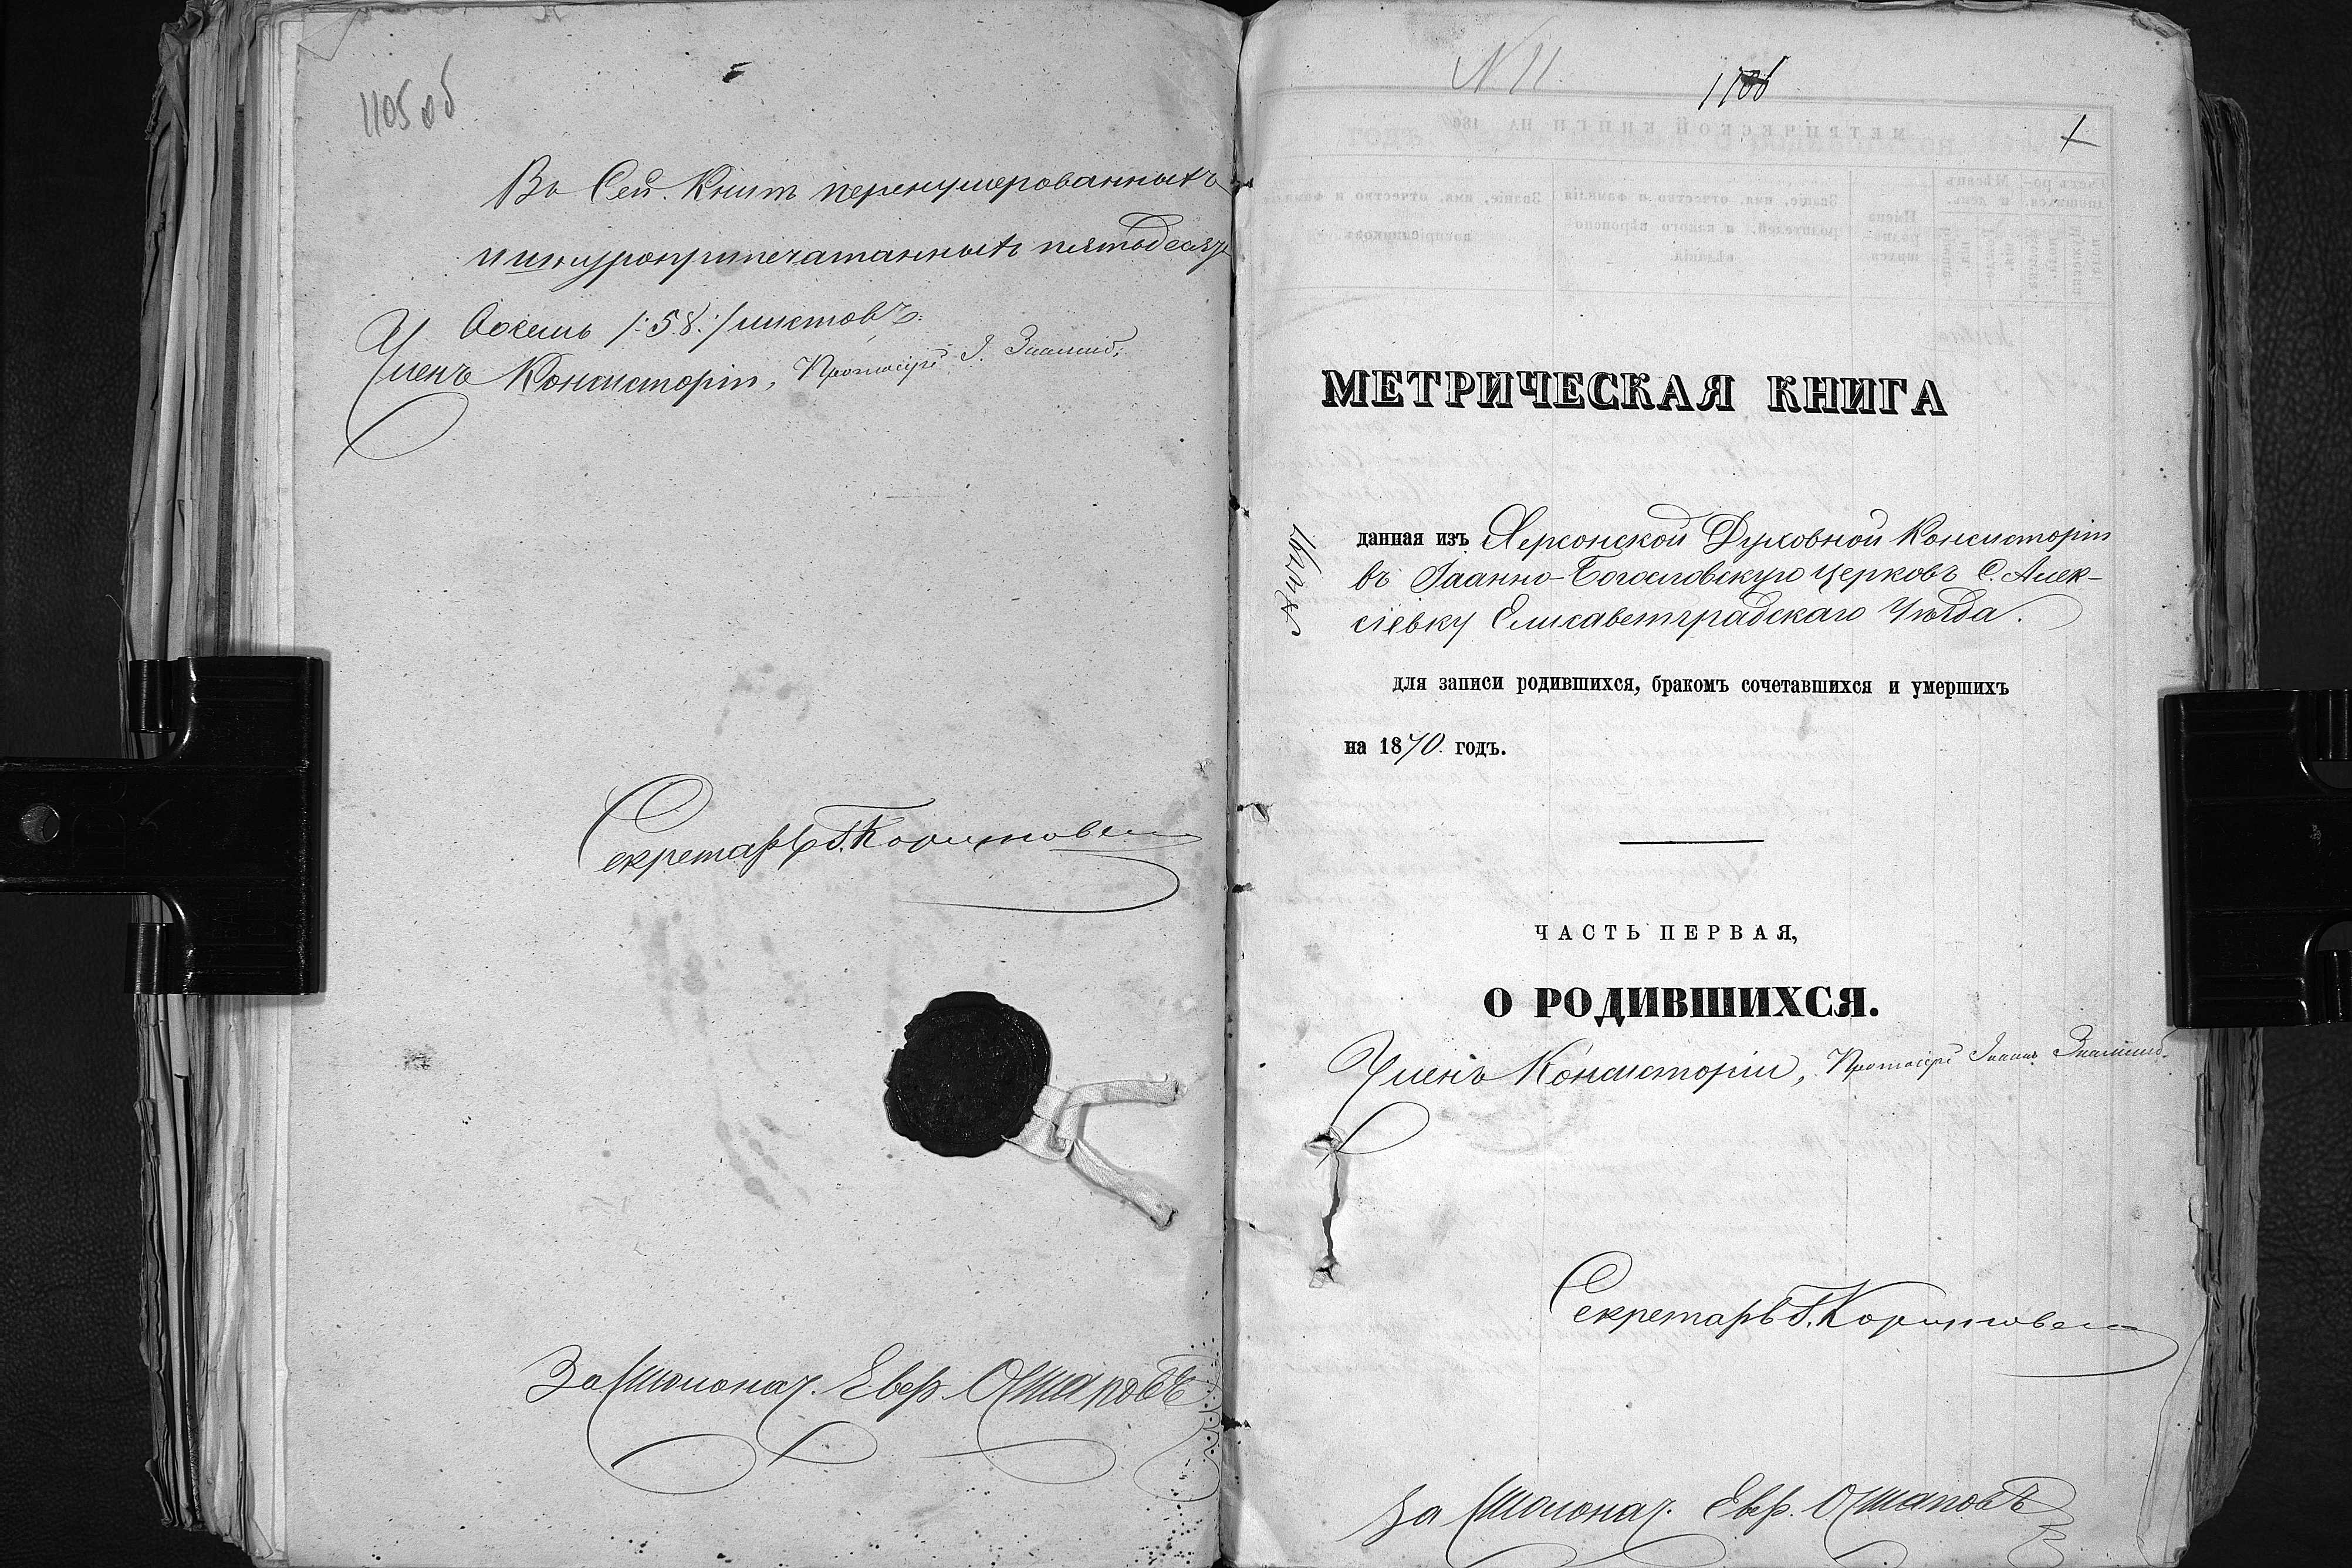 1105 об
Въ Сей Книгѣ перенумерованныхъ
и шнуроприпечатанныхъ пятьдесятъ
Восемь /:58:/ листовъ.
Членъ Консисторіи, Протоіерей І.
Секретарь Г.
За Столонач. Евф.
N 11
1106
1
МЕТРИЧЕСКАЯ КНИГА
данная изъ Херсонской Духовной Консисторіи
въ Іоанно-Богословскую церковь С. Алек-
сіевку Елисаветградскаго Уѣзда.
для записи родившихся, бракомъ сочетавшихся и умершихъ
на 1870 годъ.
ЧАСТЬ ПЕРВАЯ,
О РОДИВШИХСЯ.
Членъ Консисторіи, Протоіерей Іоаннъ
Секретарь Г.
За Столонач. Евф.